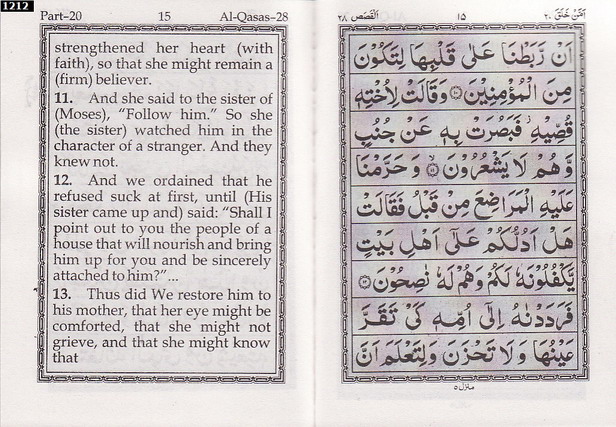 1212
Part–20 15 Al-Qasas–28
strengthened her heart (with
faith), so that she might remain a
(firm) believer.
11. And she said to the sister of
(Moses), “Follow him.” So she
(the sister) watched him in the
character of a stranger. And they
knew not.
12. And we ordained that he
refused suck at first, until (His
sister came up and) said: “Shall I
point out to you the people of a
house that will nourish and bring
him up for you and be sincerely
attached to him?”...
13. Thus did We restore him to
his mother, that her eye might be
comforted, that she might not
grieve, and that she might know
that
اَمَّنْ خَلَقَ ٢٠ ١٥ اَلْقَصَص ٢٨
اَنْ رَّبَطْنَا عَلٰى قَلْبِهَا لِتَكُوْنَ
مِنَ الْمُؤْمِنِيْنَ ⑩ وَقَالَتْ لِاُخْتِهٖ
قُصِّيْهِ ۫ فَبَصُرَتْ بِهٖ عَنْ جُنُبٍ
وَّهُمْ لَا يَشْعُرُوْنَ ⑪ وَحَرَّمْنَا
عَلَيْهِ الْمَرَاضِعَ مِنْ قَبْلُ فَقَالَتْ
هَلْ اَدُلُّكُمْ عَلٰٓى اَهْلِ بَيْتٍ
يَّكْفُلُوْنَهٗ لَكُمْ وَهُمْ لَهٗ نٰصِحُوْنَ ⑫
فَرَدَدْنٰهُ اِلٰٓى اُمِّهٖ كَىْ تَقَرَّ
عَيْنُهَا وَلَا تَحْزَنَ وَلِتَعْلَمَ اَنَّ
منزل ٥